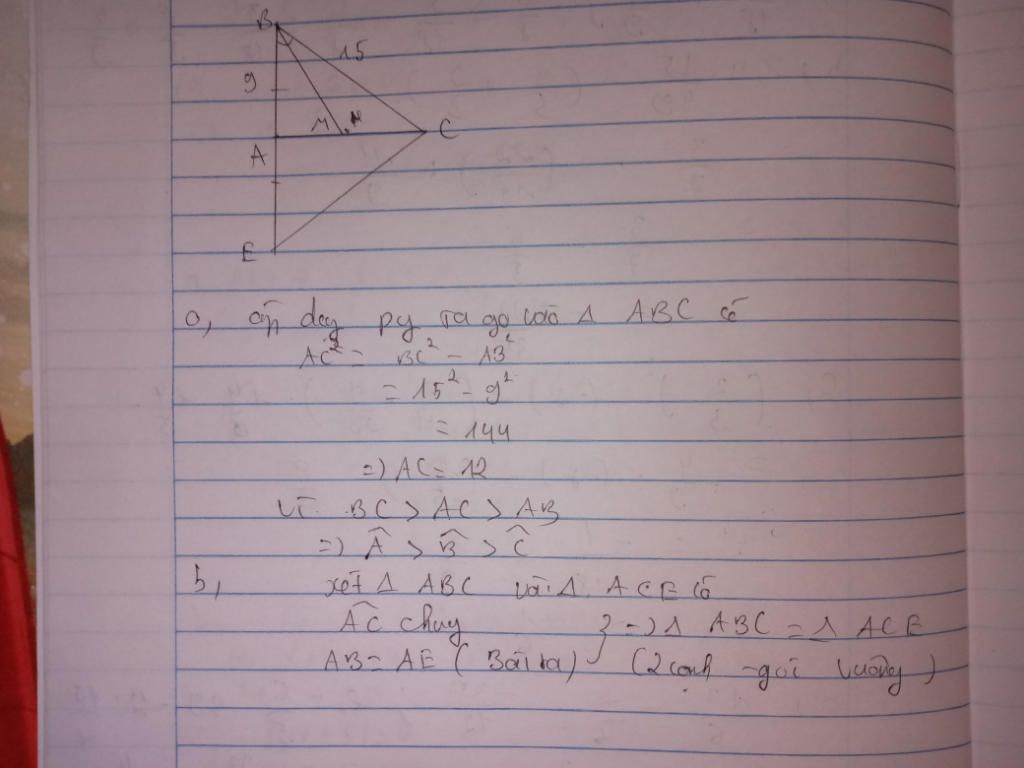 B
15
9
M
C
A
E
a, áp dụg py ta go vào Δ ABC có
AC² = BC² - AB²
= 15² - 9²
= 144
=> AC = 12
Vì BC > AC > AB
=> Â > B̂ > Ĉ
b, xét Δ ABC và Δ ACE có
AC chug } => Δ ABC = Δ ACE
AB = AE ( Bài ra ) (2 cạnh - góc vuông )